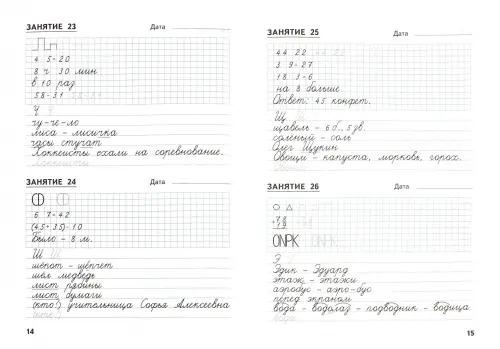 ЗАНЯТИЕ 23 Дата
4 · 5 = 20
8 ч 30 мин.
в 10 раз
58 - 31 58 - 31
Ч Ч
чу-че-ло
лиса - лисичка
часы стучат
Хоккеисты ехали на соревнование.
Хоккеисты
ЗАНЯТИЕ 24 Дата
6 · 7 = 42
(45 + 35) - 10
Было - 8 м.
Ш Ш
шёпот - шепчет
шёл медведь
лист рябины
лист бумаги
(кто?) учительница Софья Алексеевна
(кто?)
14
ЗАНЯТИЕ 25 Дата
44 22 44 22
3 · 9 = 27
18 : 3 = 6
на 8 больше
Ответ: 45 конфет.
Щ Щ
щавель - 6 б., 5 зв.
солёный - соль
Олег Щукин
Овощи - капуста, морковь, горох.
ЗАНЯТИЕ 26 Дата
ONPK
Э
Эдик - Эдуард
этаж - этажи
аэробус - аэро-бус
перед экраном
вода - водолаз - подводник - водица
вода
15